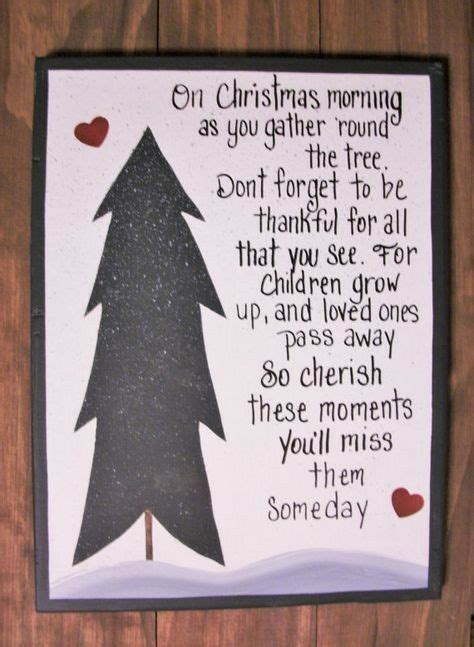 On Christmas morning
as you gather 'round
the tree.
Dont forget to be
thankful for all
that you see. For
Children grow
up, and loved ones
pass away
So cherish
these moments
You'll miss
them
Someday